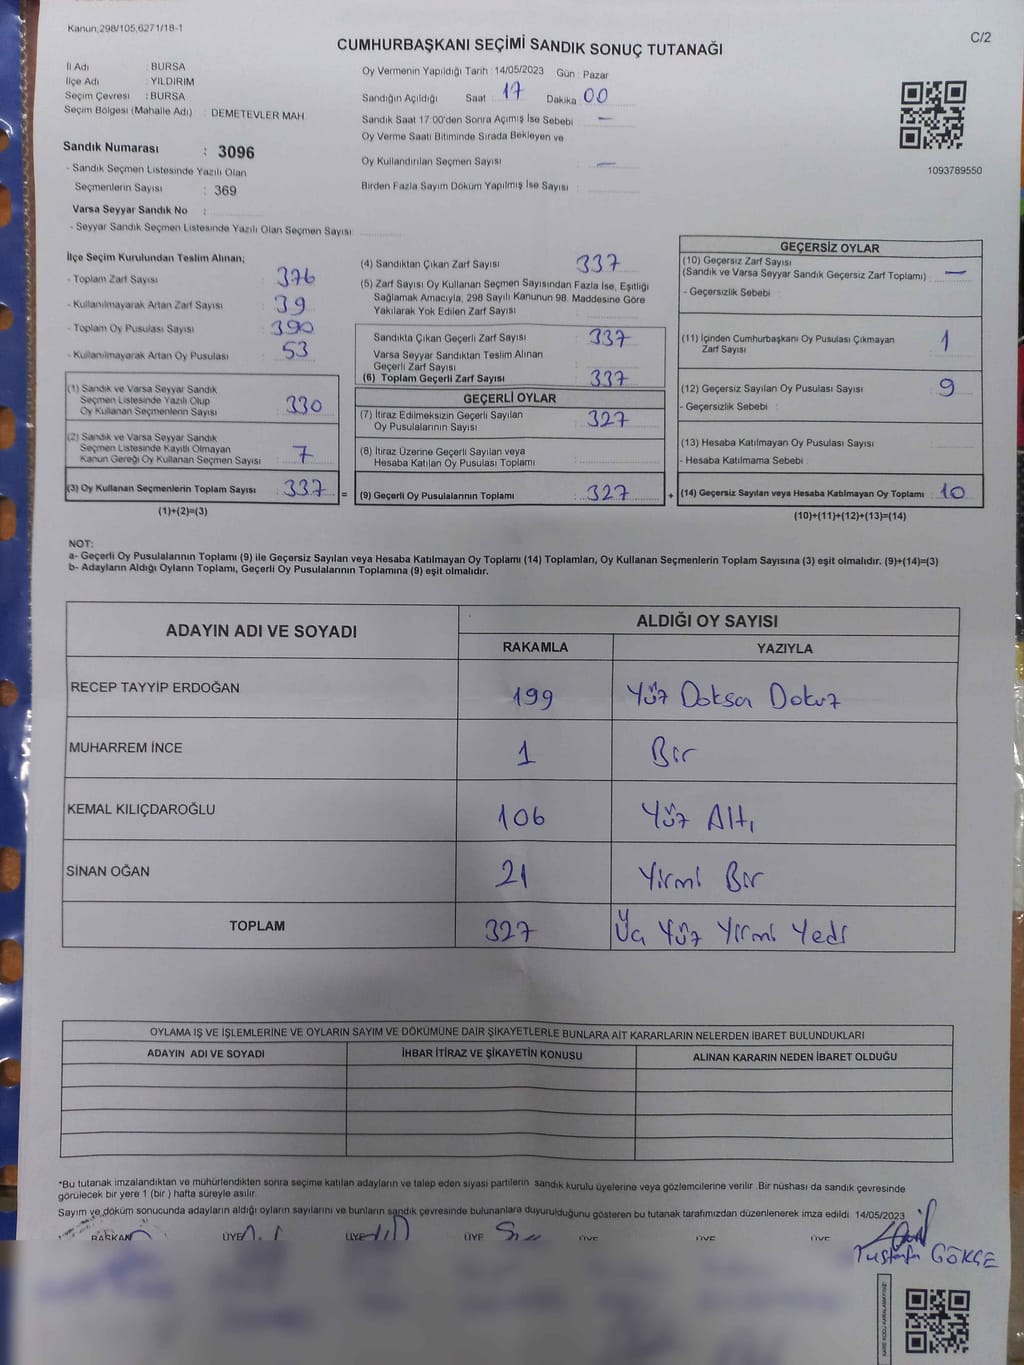 Kanun;298/105,6271/18-1
C/2
CUMHURBAŞKANI SEÇİMİ SANDIK SONUÇ TUTANAĞI
İl Adı : BURSA
İlçe Adı : YILDIRIM
Seçim Çevresi : BURSA
Seçim Bölgesi (Mahalle Adı) : DEMETEVLER MAH.
Sandık Numarası : 3096
- Sandık Seçmen Listesinde Yazılı Olan
Seçmenlerin Sayısı : 369
Varsa Seyyar Sandık No :
- Seyyar Sandık Seçmen Listesinde Yazılı Olan Seçmen Sayısı:
Oy Vermenin Yapıldığı Tarih : 14/05/2023 Gün : Pazar
Sandığın Açıldığı Saat : 17 Dakika : 00
Sandık Saat 17:00'den Sonra Açımış İse Sebebi : —
Oy Verme Saati Bitiminde Sırada Bekleyen ve
Oy Kullandırılan Seçmen Sayısı : —
Birden Fazla Sayım Döküm Yapılmış İse Sayısı :
1093789550
İlçe Seçim Kurulundan Teslim Alınan;
- Toplam Zarf Sayısı : 376
- Kullanılmayarak Artan Zarf Sayısı : 39
- Toplam Oy Pusulası Sayısı : 390
- Kullanılmayarak Artan Oy Pusulası : 53
(1) Sandık ve Varsa Seyyar Sandık
Seçmen Listesinde Yazılı Olup
Oy Kullanan Seçmenlerin Sayısı : 330
(2) Sandık ve Varsa Seyyar Sandık
Seçmen Listesinde Kayıtlı Olmayan
Kanun Gereği Oy Kullanan Seçmen Sayısı : 7
(3) Oy Kullanan Seçmenlerin Toplam Sayısı : 337 =
(1)+(2)=(3)
(4) Sandıktan Çıkan Zarf Sayısı : 337
(5) Zarf Sayısı Oy Kullanan Seçmen Sayısından Fazla İse, Eşitliği
Sağlamak Amacıyla, 298 Sayılı Kanunun 98. Maddesine Göre
Yakılarak Yok Edilen Zarf Sayısı :
Sandıkta Çıkan Geçerli Zarf Sayısı : 337
Varsa Seyyar Sandıktan Teslim Alınan
Geçerli Zarf Sayısı :
(6) Toplam Geçerli Zarf Sayısı : 337
GEÇERLİ OYLAR
(7) İtiraz Edilmeksizin Geçerli Sayılan
Oy Pusulalarının Sayısı : 327
(8) İtiraz Üzerine Geçerli Sayılan veya
Hesaba Katılan Oy Pusulası Toplamı :
(9) Geçerli Oy Pusulalarının Toplamı : 327 +
GEÇERSİZ OYLAR
(10) Geçersiz Zarf Sayısı
(Sandık ve Varsa Seyyar Sandık Geçersiz Zarf Toplamı) : —
- Geçersizlik Sebebi :
(11) İçinden Cumhurbaşkanı Oy Pusulası Çıkmayan
Zarf Sayısı : 1
(12) Geçersiz Sayılan Oy Pusulası Sayısı : 9
- Geçersizlik Sebebi :
(13) Hesaba Katılmayan Oy Pusulası Sayısı :
- Hesaba Katılmama Sebebi :
(14) Geçersiz Sayılan veya Hesaba Katılmayan Oy Toplamı : 10
(10)+(11)+(12)+(13)=(14)
NOT:
a- Geçerli Oy Pusulalarının Toplamı (9) ile Geçersiz Sayılan veya Hesaba Katılmayan Oy Toplamı (14) Toplamları, Oy Kullanan Seçmenlerin Toplam Sayısına (3) eşit olmalıdır. (9)+(14)=(3)
b- Adayların Aldığı Oyların Toplamı, Geçerli Oy Pusulalarının Toplamına (9) eşit olmalıdır.
ADAYIN ADI VE SOYADI
ALDIĞI OY SAYISI
RAKAMLA YAZIYLA
RECEP TAYYİP ERDOĞAN 199 Yüz Doksan Dokuz
MUHARREM İNCE 1 Bir
KEMAL KILIÇDAROĞLU 106 Yüz Altı
SİNAN OĞAN 21 Yirmi Bir
TOPLAM 327 Üç Yüz Yirmi Yedi
OYLAMA İŞ VE İŞLEMLERİNE VE OYLARIN SAYIM VE DÖKÜMÜNE DAİR ŞİKAYETLERLE BUNLARA AİT KARARLARIN NELERDEN İBARET BULUNDUKLARI
ADAYIN ADI VE SOYADI İHBAR İTİRAZ VE ŞİKAYETİN KONUSU ALINAN KARARIN NEDEN İBARET OLDUĞU
*Bu tutanak imzalandıktan ve mühürlendikten sonra seçime katılan adayların ve talep eden siyasi partilerin sandık kurulu üyelerine veya gözlemcilerine verilir. Bir nüshası da sandık çevresinde
görülecek bir yere 1 (bir) hafta süreyle asılır.
Sayım ve döküm sonucunda adayların aldığı oyların sayılarını ve bunların sandık çevresinde bulunanlara duyurulduğunu gösteren bu tutanak tarafımızdan düzenlenerek imza edildi. 14/05/2023
BAŞKAN ÜYE ÜYE ÜYE ÜYE ÜYE ÜYE
GÖKÇE